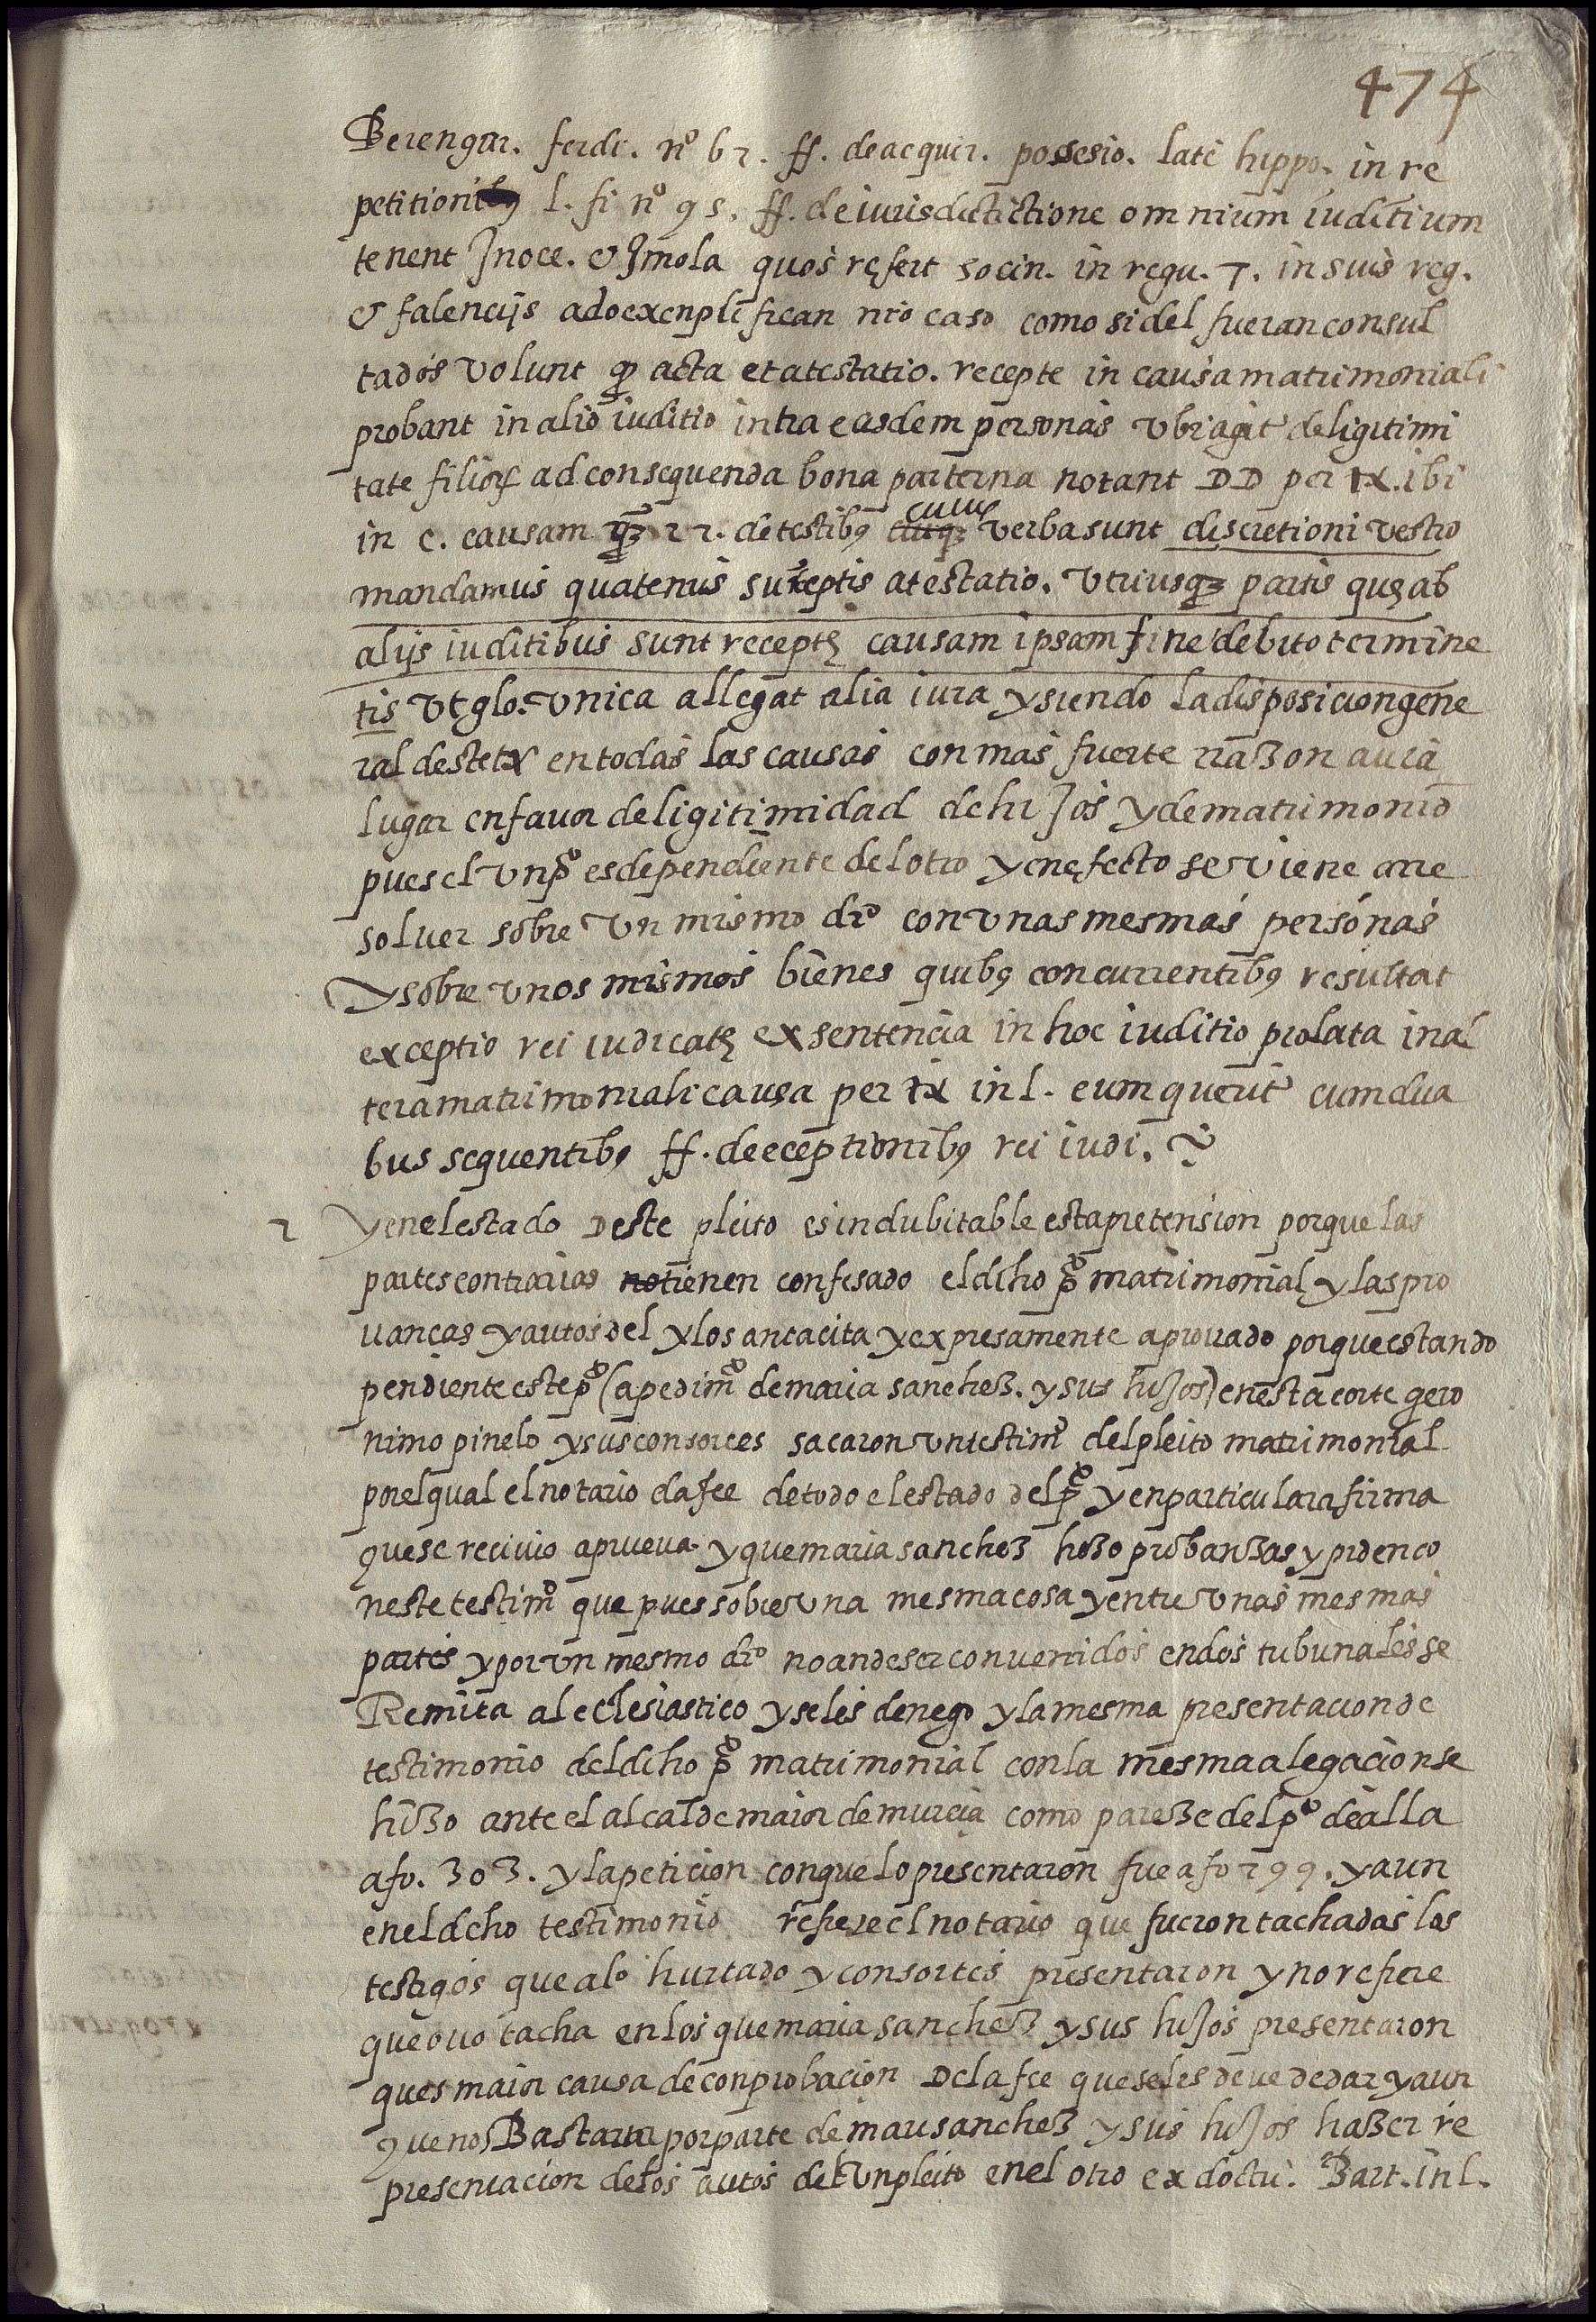 474
Berengar. ferdi. nº 62. ff. de acquir. possesio. late hippo. in re
petitioni l. fi nº 95. ff. de iurisdictictione omnium iuditium
tenent Jnoce. & Jmola quos refert socin. in regu. 7. in suis reg.
& falencijs adoexenplifican nro caso como si del fueran consul
tados volunt ꝙ acta et atestatio. recepte in causa matrimoniali
probant in alio iuditio intra easdem personas vbi agit de ligitimi
tate filiorꝝ ad consequenda bona parterna notant DD per tx. ibi
in c. causam qꝫ 22. de testibꝰ cuius verba sunt discretioni vestro
mandamus quatenus suceptis atestatio. vtriusqꝫ partis quę ab
alijs iuditibus sunt receptę causam ipsam fine debito termine
tis vt glo. vnica allegat alia iura y siendo la disposicion gene
ral deste tx en todas las causas con mas fuerte rrazon aura
lugar en fauor de ligitimidad de hijos y de matrimonio
pues el vn pº es dependiente del otro y en efecto se viene arre
soluer sobre vn mismo drº con vnas mesmas personas
y sobre vnos mismos bienes quibꝰ concurrentibꝰ resultat
exceptio rei iudicatę ex sentencia in hoc iuditio prolata in al
tera matrimoniali causa per tx in l. cum querit cum dua
bus sequentibꝰ ff. de eceptionibꝰ rei iudi.
2 y en el estado deste pleito es indubitable esta pretension porque las
partes contrarias no tienen confesado el dicho pº matrimonial y las pro
uanças y autos del y los an tacita y expresamente aprouado porque estando
pendiente este pº (a pedimº de maria sanchez. y sus hijos) en esta corte gero
nimo pinelo y sus consortes sacaron vn testimº del pleito matrimonial
por el qual el notario da fee de todo el estado del pº y en particular afirma
que se reciuio a prueua y que maria sanchez hizo probanzas y piden co
neste testimº que pues sobre vna mesma cosa y entre vnas mesmas
partes y por vn mesmo drº no an de ser conuenidos en dos tribunales se
Remita al eclesiastico y se les denego y la mesma presentacion de
testimonio del dicho pº matrimonial con la mesma alegacion se
hizo ante el alcalde maior de murcia como pareze del pº de alla
a fo. 303. y la peticion con que lo presentaron fue a fo 299. y aun
en el dcho testimonio refiere el notario que fueron tachadas los
testigos que alº hurtado y consortes presentaron y no refiere
que ouo tacha en los que maria sanchez y sus hijos presentaron
ques maior causa de conprobacion de la fee que se les deue de dar y aun
que nos Bastara por parte de mari sanchez y sus hijos hazer re
presentacion de los autos del vn pleito en el otro ex doctri. Bart. in l.